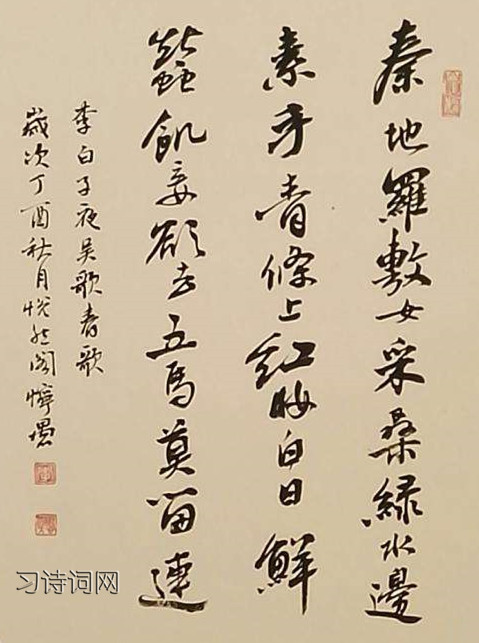 秦地羅敷女采桑綠水邊
素手青條上紅妝白日鮮
蠶飢妾欲去五馬莫留連
李白子夜吳歌春歌
歲次丁酉秋月
习诗词网